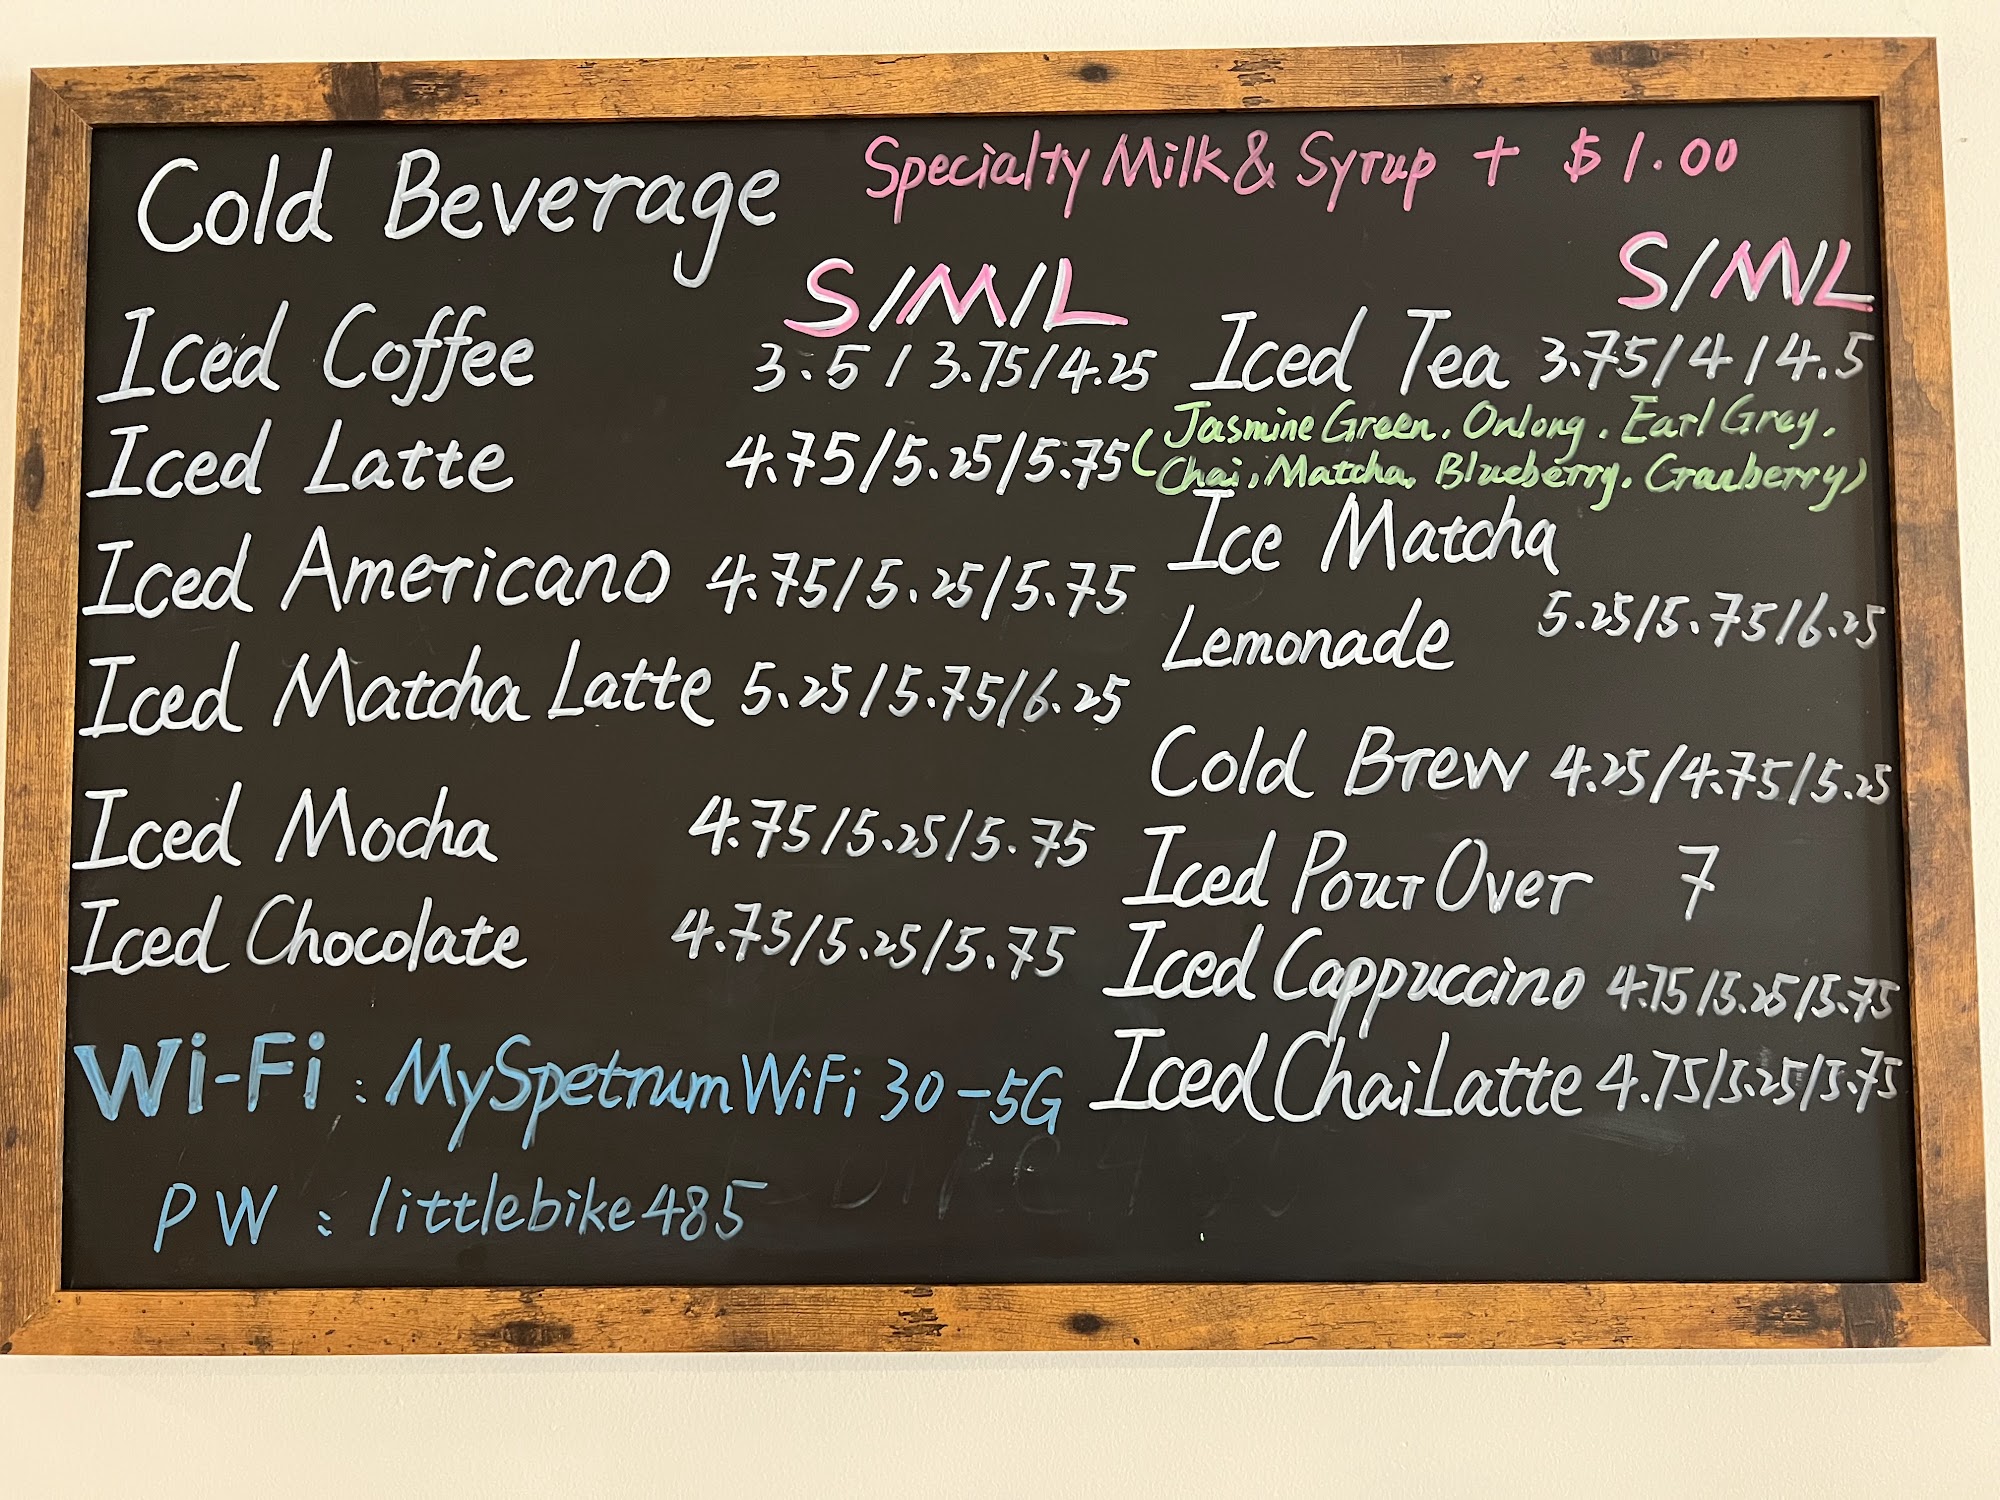 Cold Beverage
Specialty Milk & Syrup + $1.00
S/M/L
Iced Coffee 3.5/3.75/4.25
Iced Latte 4.75/5.25/5.75
Iced Americano 4.75/5.25/5.75
Iced Matcha Latte 5.25/5.75/6.25
Iced Mocha 4.75/5.25/5.75
Iced Chocolate 4.75/5.25/5.75
Wi-Fi: MySpetrumWiFi30-5G
PW: littlebike485
S/M/L
Iced Tea 3.75/4/4.5
(Jasmine Green, Onlong, Earl Grey,
Chai, Matcha, Blueberry, Cranberry)
Ice Matcha
Lemonade 5.25/5.75/6.25
Cold Brew 4.25/4.75/5.25
Iced Pour Over 7
Iced Cappuccino 4.75/5.25/5.75
Iced Chai Latte 4.75/5.25/5.75